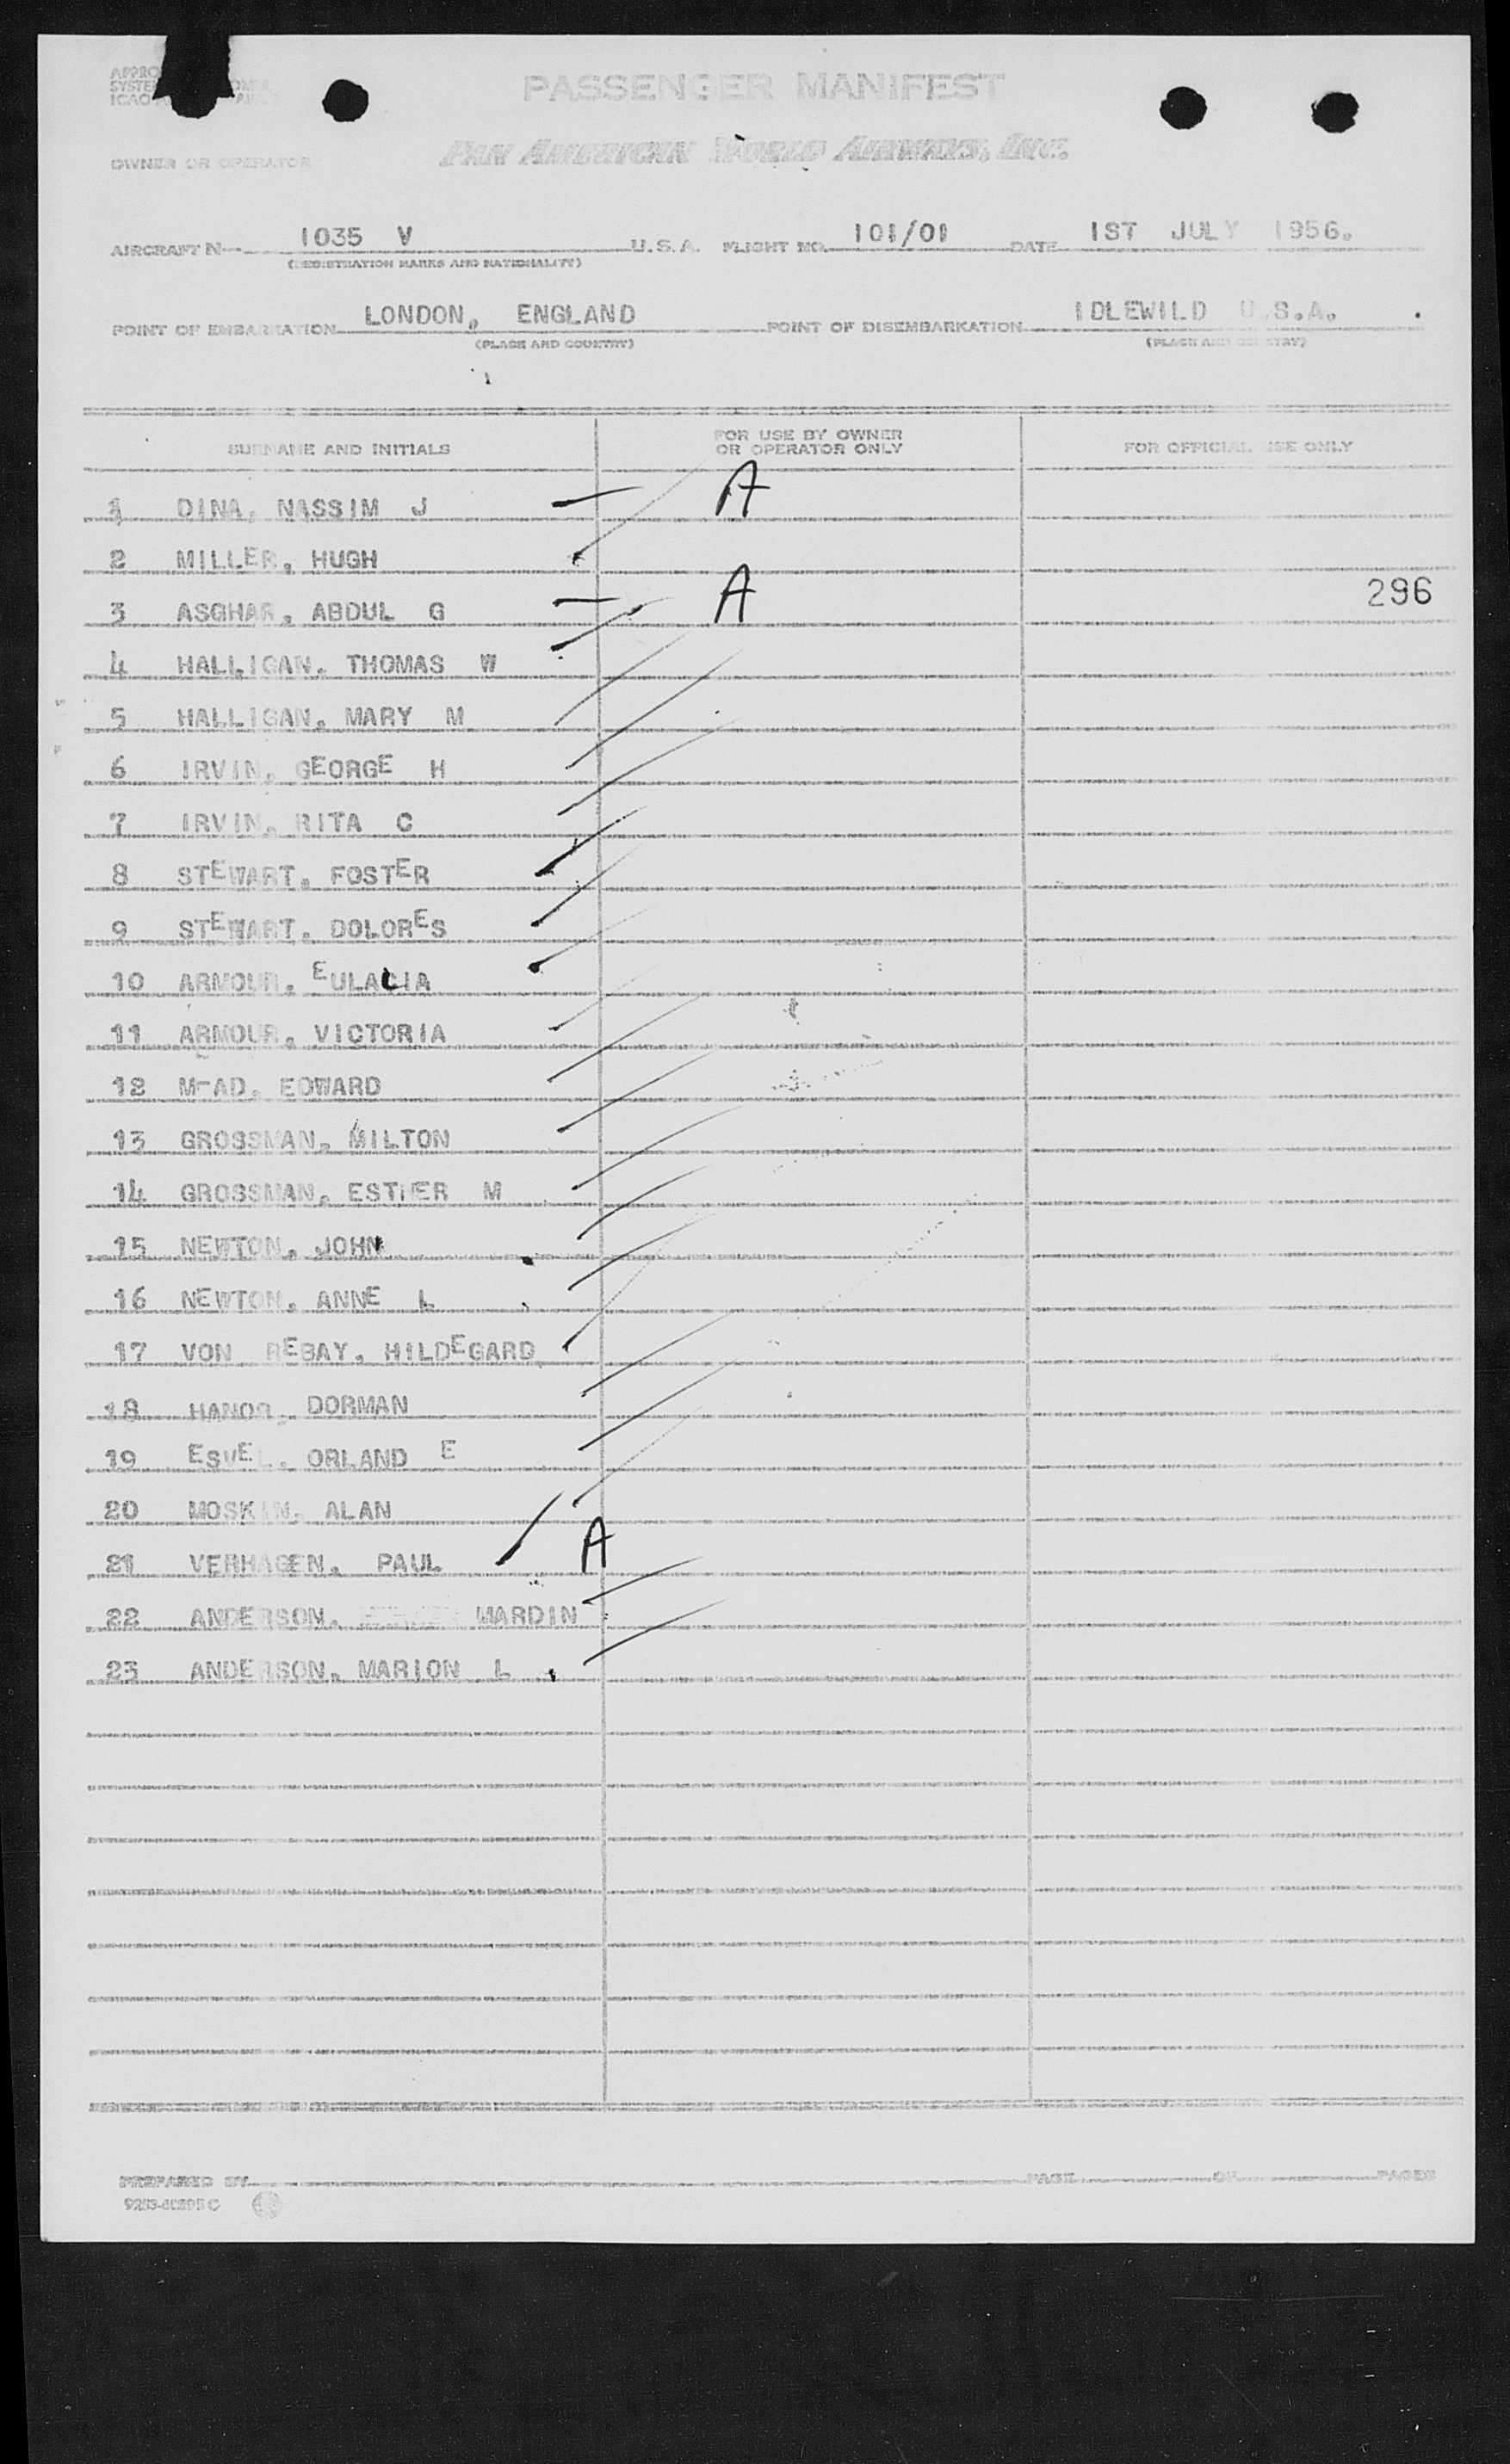 PASSENGER MANIFEST
PAN AMERICAN WORLD AIRWAYS, INC.
OWNER OR OPERATOR
AIRCRAFT N- 1035 V U.S.A. FLIGHT NO. 101/01 DATE 1ST JULY 1956.
(REGISTRATION MARKS AND NATIONALITY)
POINT OF EMBARKATION LONDON, ENGLAND POINT OF DISEMBARKATION IDLEWILD U.S.A.
(PLACE AND COUNTRY) (PLACE AND COUNTRY)
SURNAME AND INITIALS FOR USE BY OWNER OR OPERATOR ONLY FOR OFFICIAL USE ONLY
1 DINA, NASSIM J A
2 MILLER, HUGH
3 ASGHAR, ABDUL G A 296
4 HALLIGAN, THOMAS W
5 HALLIGAN, MARY M
6 IRVIN, GEORGE H
7 IRVIN, RITA C
8 STEWART, FOSTER
9 STEWART, DOLORES
10 ARMOUR, EULALIA
11 ARMOUR, VICTORIA
12 EDWARD
13 GROSSMAN, MILTON
14 GROSSMAN, ESTHER M
15 NEWTON, JOHN
16 NEWTON, ANNE L
17 VON REBAY, HILDEGARD
18 DORMAN
19 ORLAND E
20 MOSKIN, ALAN
21 VERHAGEN, PAUL A
22 ANDERSON, MARDIN
23 ANDERSON, MARION L
PREPARED BY PAGE OF PAGES